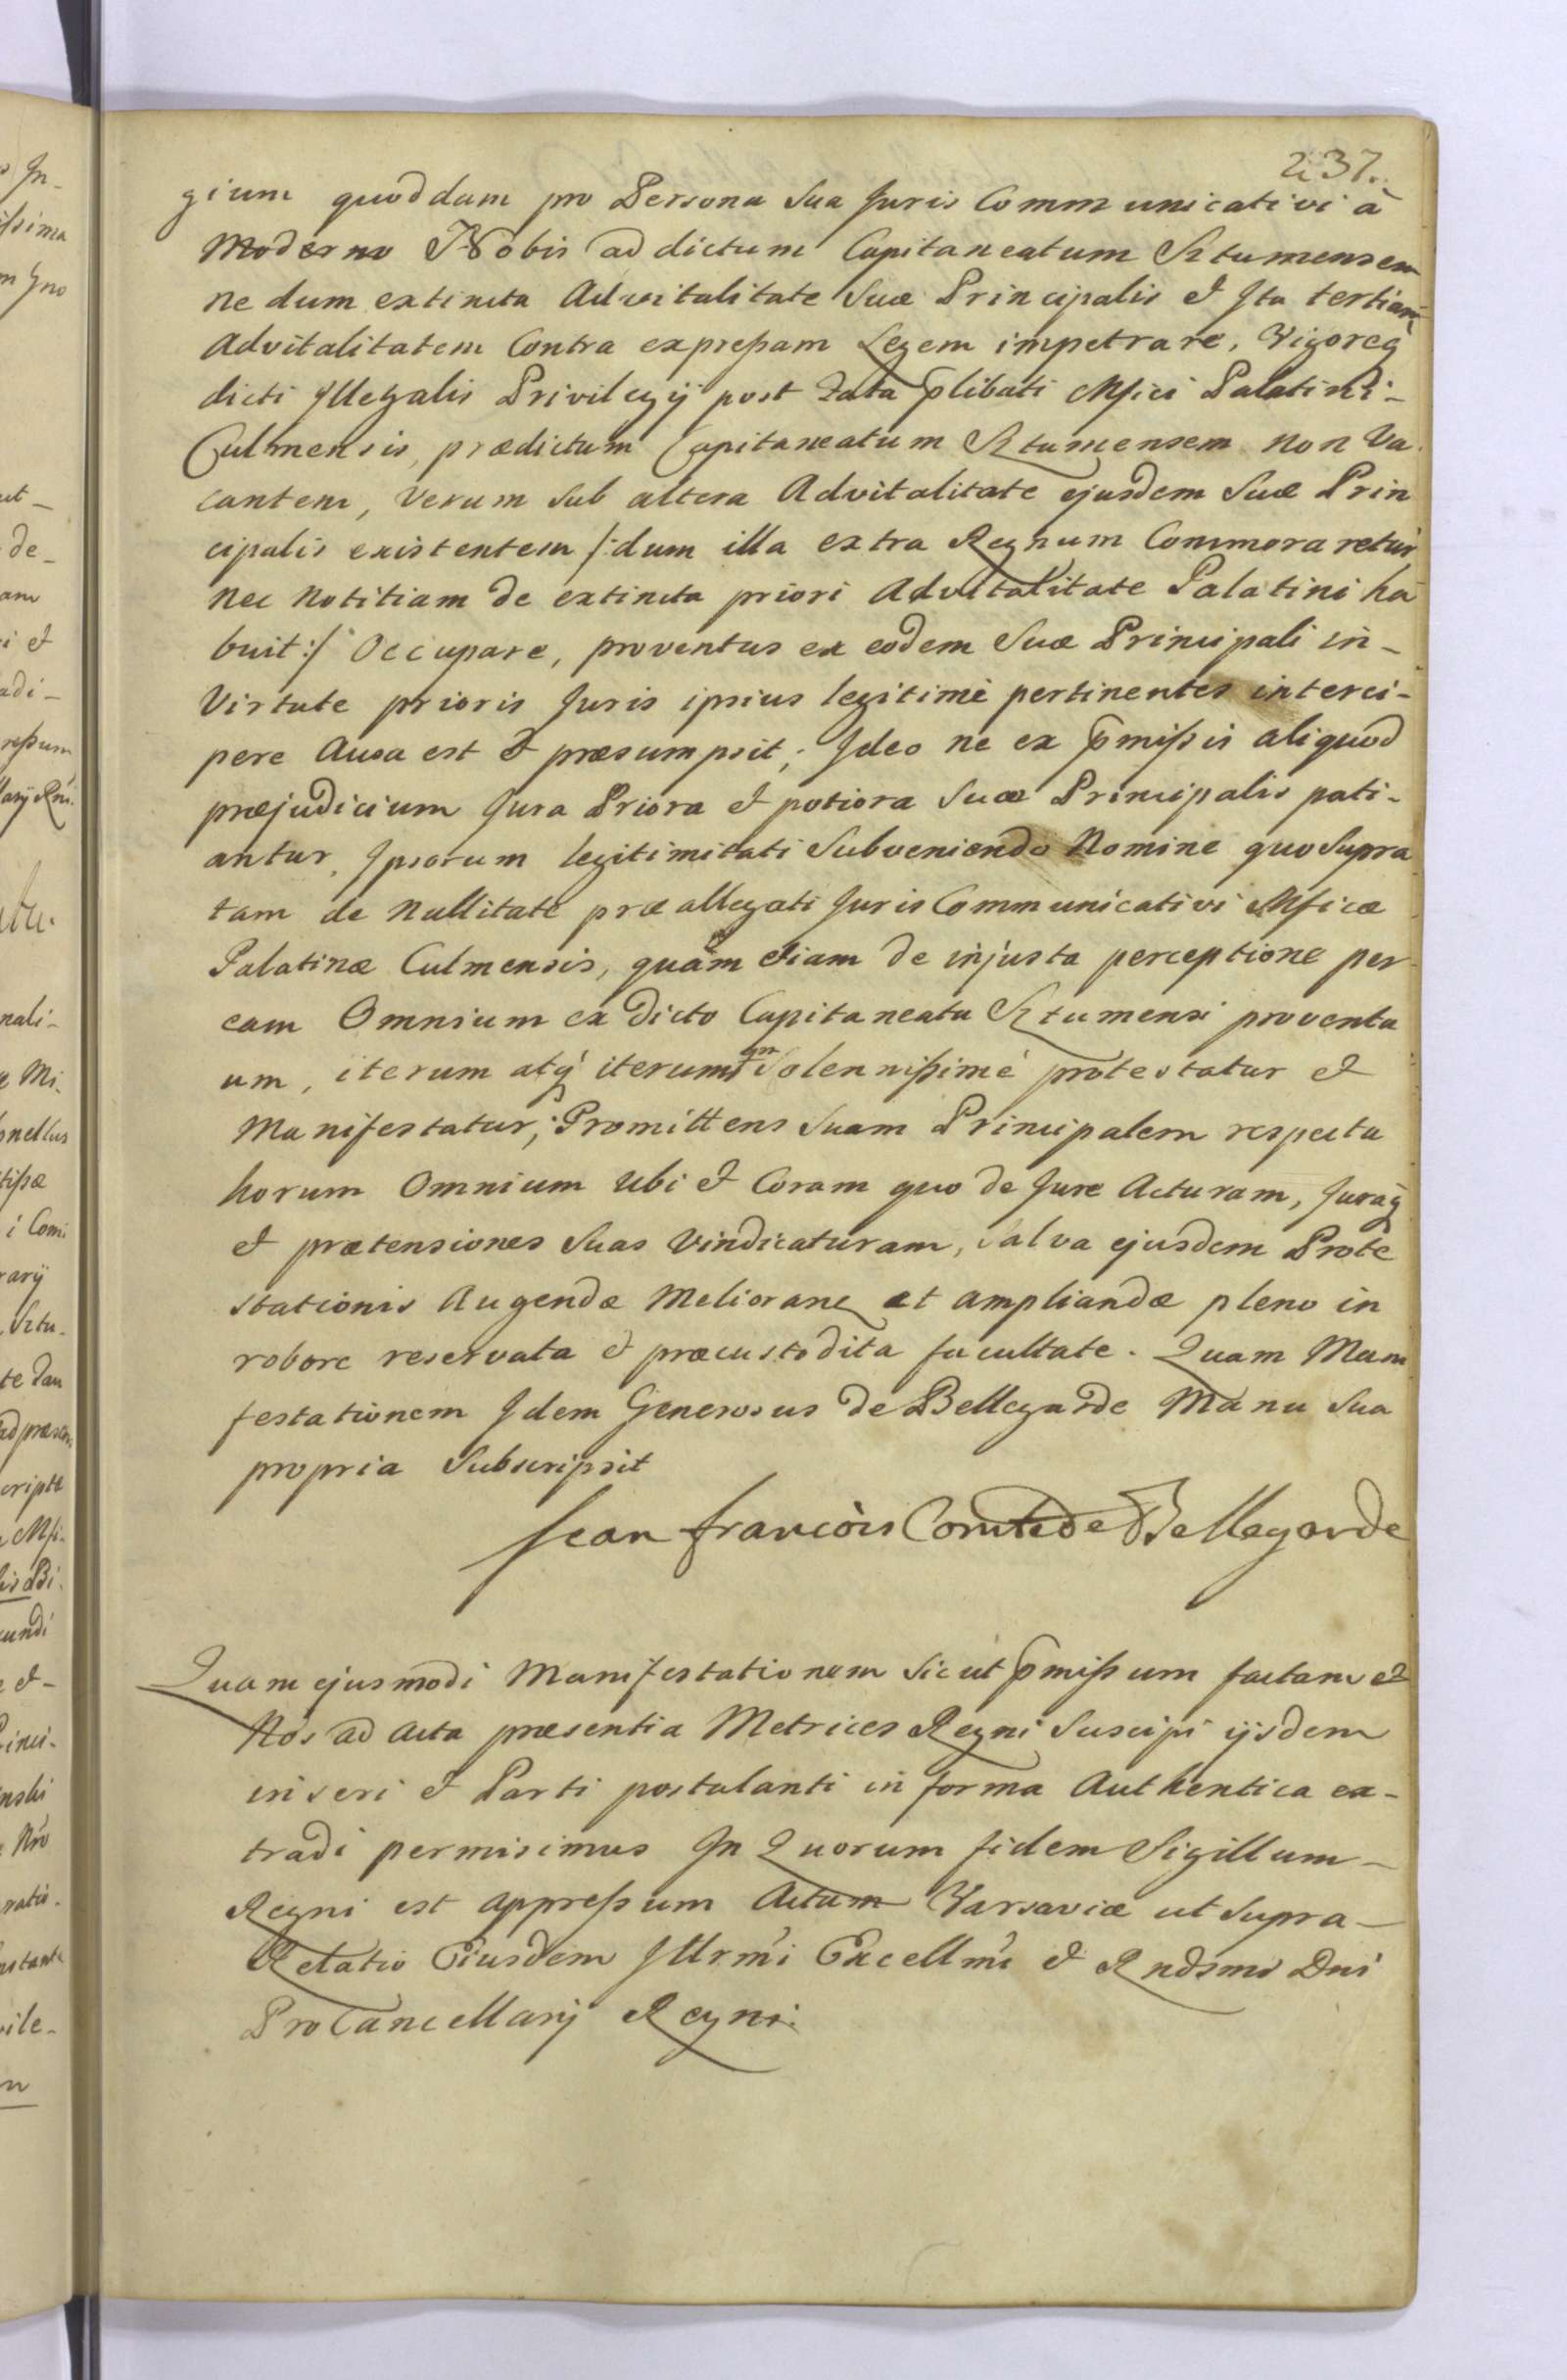 237.
gium quoddam pro Persona Sua Juris Communicativi à
Moderno Nobis ad dictum Capitaneatum Sztumensem
ne dum extincta Advitalitate Suæ Principalis et Ita tertiam
Advitalitatem Contra expressam Legem impetrare, Vigoreq
dicti Illegalis Privilegij post Fata plibati Mfici Palatini-
Culmensis, prædictum Capitaneatum Sztumensem non Va
cantem, Verum Sub altera Advitalitate ejusdem Suæ Prin
cipalis existentem /:dum illa extra Regnum Commoraretur
nec Notitiam de extincta priori Advitalitate Palatini ha
buit:/ Occupare, proventus ex eodem Suæ Principali in-
Virtute prioris Juris ipsius legitimè pertinentes interci-
pere Ausa est et præsumpsit; Ideo ne ex pmissis aliquod
præjudicium Jura Priora et potiora Suæ Principalis pati-
antur, Ipsorum legitimitati Subveniendo Nomine quo Supra
tam de Nullitate præallegati Juris Communicativi Mficæ
Palatinæ Culmensis, quàm etiam de injusta perceptione per
eam Omnium ex dicto Capitaneatu Sztumensi proventu
um, iterum atq iterum Solennissimè protestatur et
Manifestatur; Promittens Suam Principalem respectu
horum Omnium Ubi et Coram quo de Jure Acturam, Juraq
et prætensiones Suas Vindicaturam, Salva ejusdem Prote
stationis Augendæ Meliorane et ampliandæ pleno in
robore reservata et præcustodita facultate. Quam Mani
festationem Idem Generosus de Bellegarde Manu Sua
propria Subscripsit
Jean francòis Comte de Bellegarde
Quam ejusmodi Manifestationem Sicut pmissum factam et
Nos ad Acta præsentia Metrices Regni Suscipi ijsdem
inseri et Parti postulanti in forma Authentica ex-
tradi permisimus In Quorum fidem Sigillum-
Regni est appressum Actum Varsaviæ ut Supra-
Relatio Eiusdem Illrmi Excellmi et Rndsmi Dni
ProCancellarij Regni.